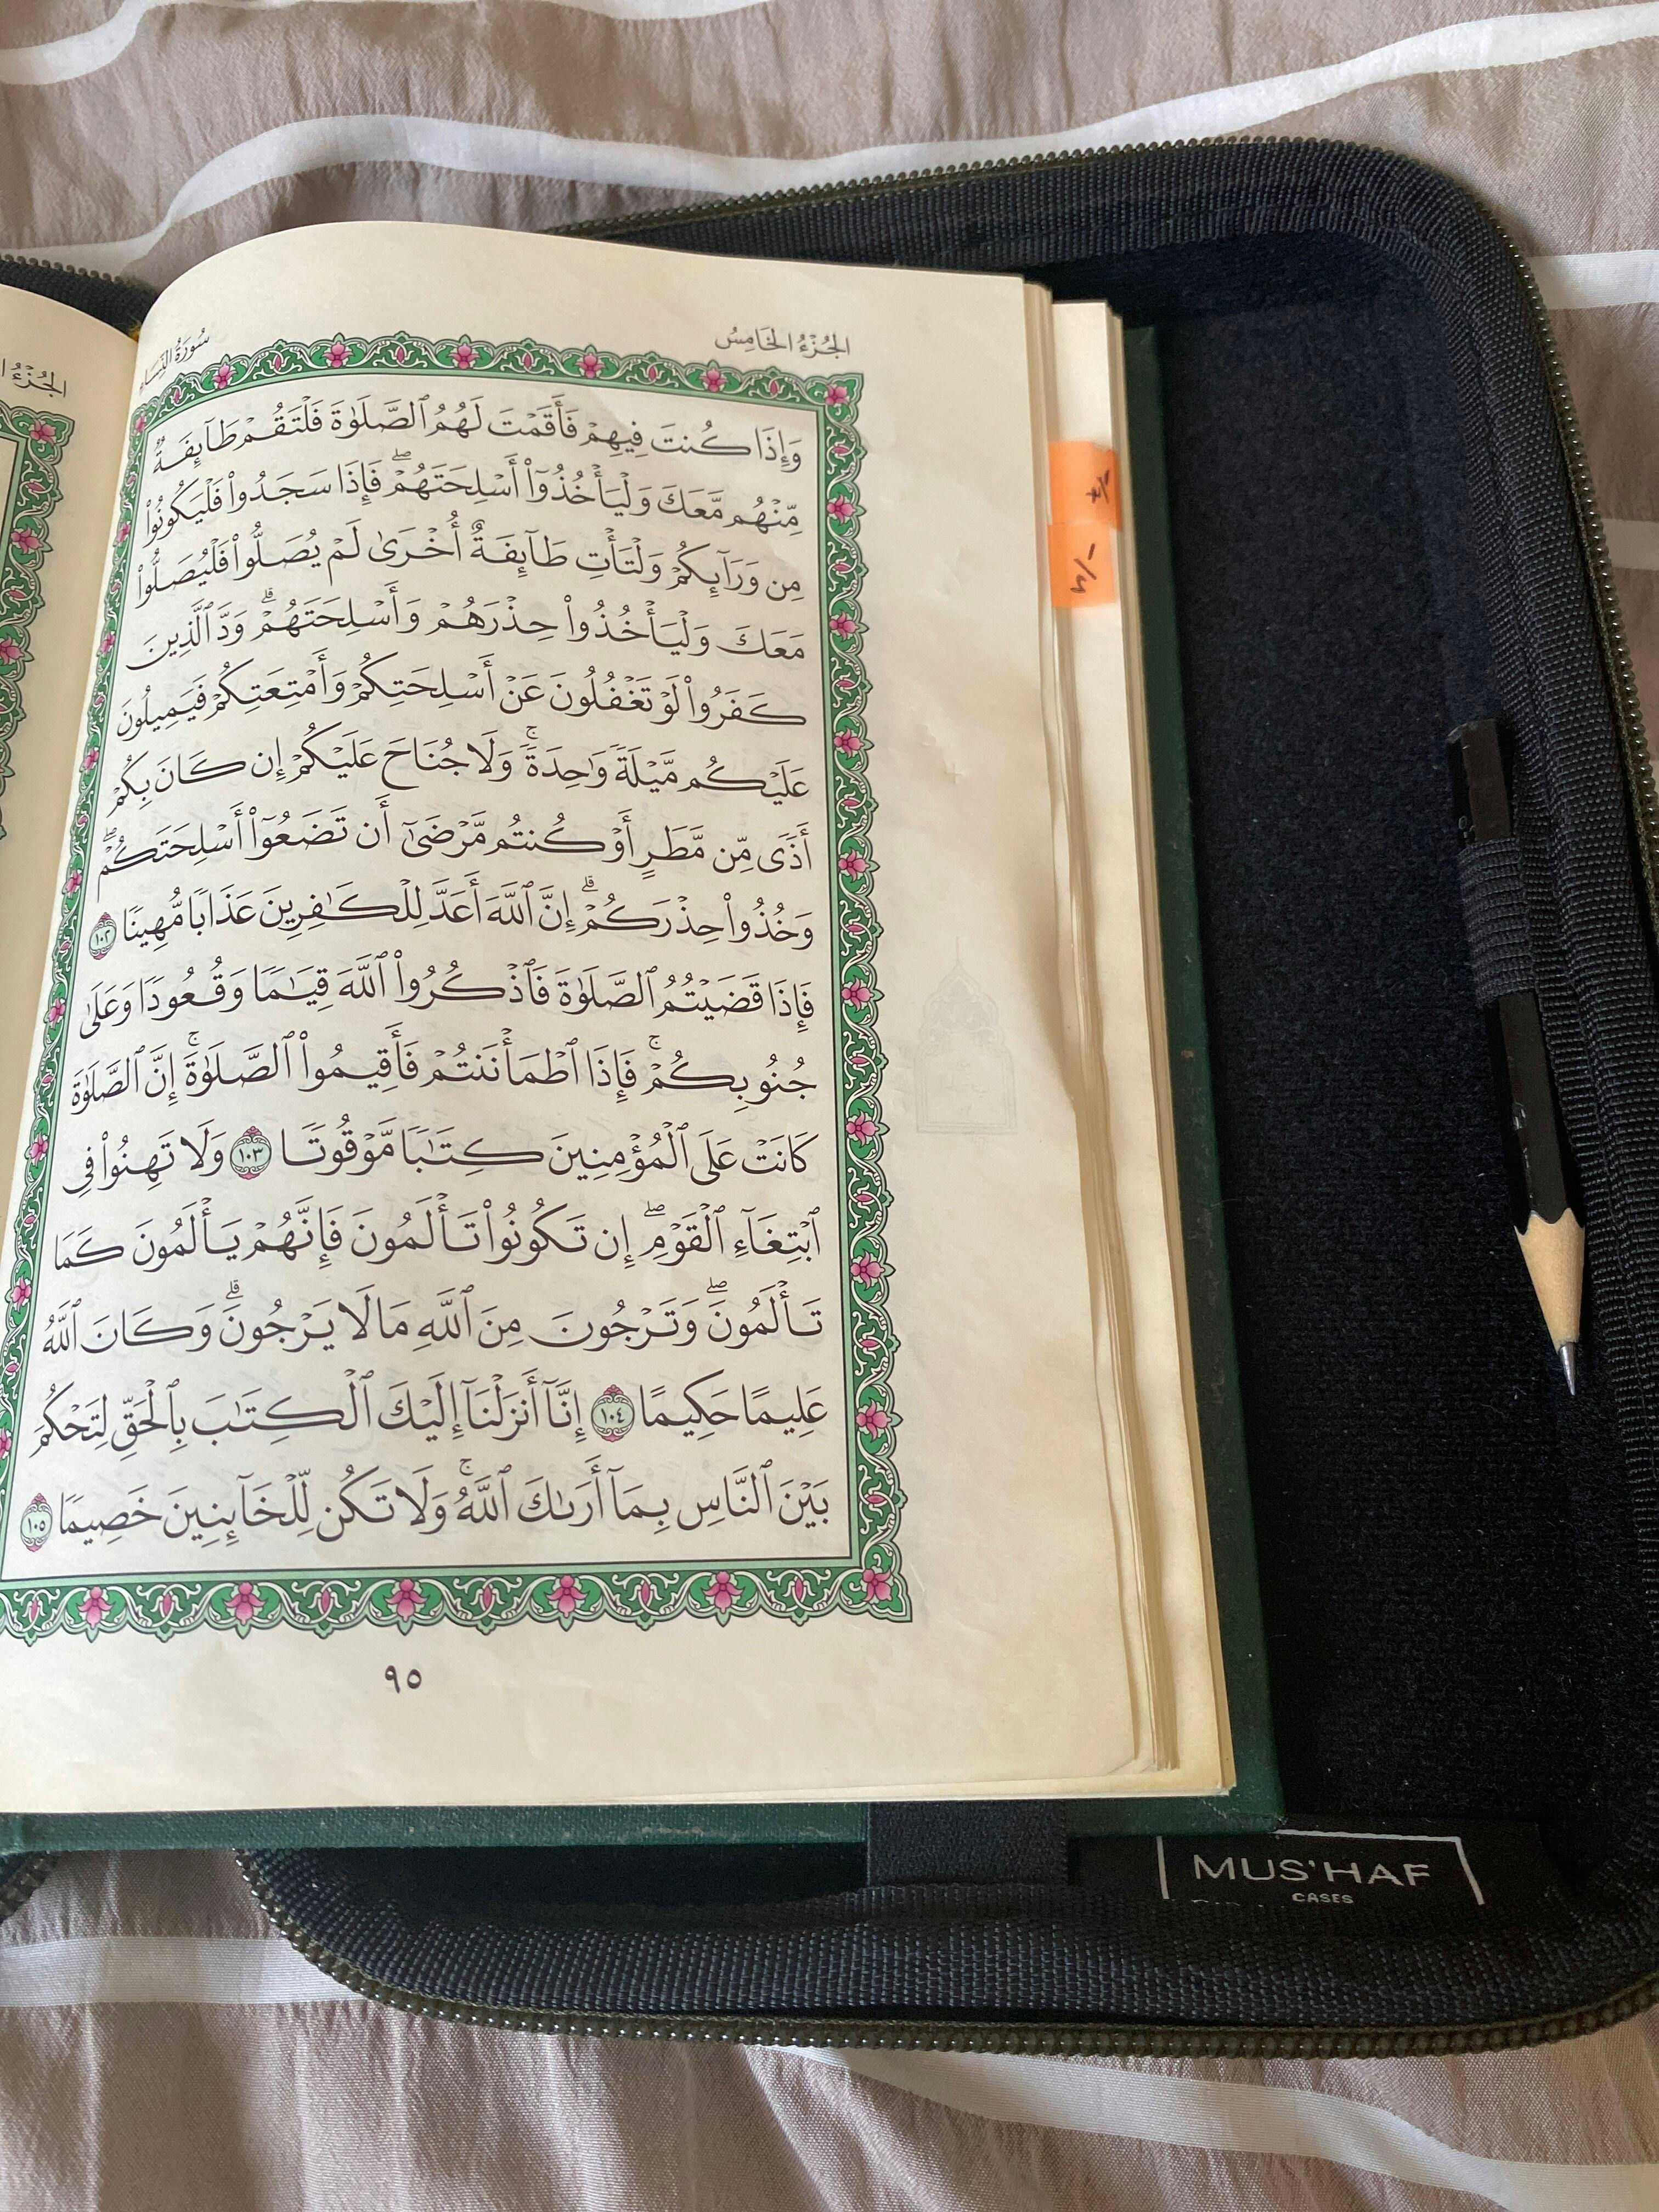 الجُزْءُ الخَامِسُ
سُورَةُ النِّسَاءِ
وَإِذَا كُنتَ فِيهِمْ فَأَقَمْتَ لَهُمُ ٱلصَّلَوٰةَ فَلْتَقُمْ طَآئِفَةٌ
مِّنْهُم مَّعَكَ وَلْيَأْخُذُوٓا۟ أَسْلِحَتَهُمْ ۖ فَإِذَا سَجَدُوا۟ فَلْيَكُونُوا۟
مِن وَرَآئِكُمْ وَلْتَأْتِ طَآئِفَةٌ أُخْرَىٰ لَمْ يُصَلُّوا۟ فَلْيُصَلُّوا۟
مَعَكَ وَلْيَأْخُذُوا۟ حِذْرَهُمْ وَأَسْلِحَتَهُمْ ۗ وَدَّ ٱلَّذِينَ
كَفَرُوا۟ لَوْ تَغْفُلُونَ عَنْ أَسْلِحَتِكُمْ وَأَمْتِعَتِكُمْ فَيَمِيلُونَ
عَلَيْكُم مَّيْلَةً وَٰحِدَةً ۚ وَلَا جُنَاحَ عَلَيْكُمْ إِن كَانَ بِكُمْ
أَذًى مِّن مَّطَرٍ أَوْ كُنتُم مَّرْضَىٰٓ أَن تَضَعُوٓا۟ أَسْلِحَتَكُمْ ۖ
وَخُذُوا۟ حِذْرَكُمْ ۗ إِنَّ ٱللَّهَ أَعَدَّ لِلْكَـٰفِرِينَ عَذَابًا مُّهِينًا ١٠٢
فَإِذَا قَضَيْتُمُ ٱلصَّلَوٰةَ فَٱذْكُرُوا۟ ٱللَّهَ قِيَـٰمًا وَقُعُودًا وَعَلَىٰ
جُنُوبِكُمْ ۚ فَإِذَا ٱطْمَأْنَنتُمْ فَأَقِيمُوا۟ ٱلصَّلَوٰةَ ۚ إِنَّ ٱلصَّلَوٰةَ
كَانَتْ عَلَى ٱلْمُؤْمِنِينَ كِتَـٰبًا مَّوْقُوتًا ١٠٣ وَلَا تَهِنُوا۟ فِى
ٱبْتِغَآءِ ٱلْقَوْمِ ۖ إِن تَكُونُوا۟ تَأْلَمُونَ فَإِنَّهُمْ يَأْلَمُونَ كَمَا
تَأْلَمُونَ ۖ وَتَرْجُونَ مِنَ ٱللَّهِ مَا لَا يَرْجُونَ ۗ وَكَانَ ٱللَّهُ
عَلِيمًا حَكِيمًا ١٠٤ إِنَّآ أَنزَلْنَآ إِلَيْكَ ٱلْكِتَـٰبَ بِٱلْحَقِّ لِتَحْكُمَ
بَيْنَ ٱلنَّاسِ بِمَآ أَرَىٰكَ ٱللَّهُ ۚ وَلَا تَكُن لِّلْخَآئِنِينَ خَصِيمًا ١٠٥
٩٥
MUS'HAF
CASES